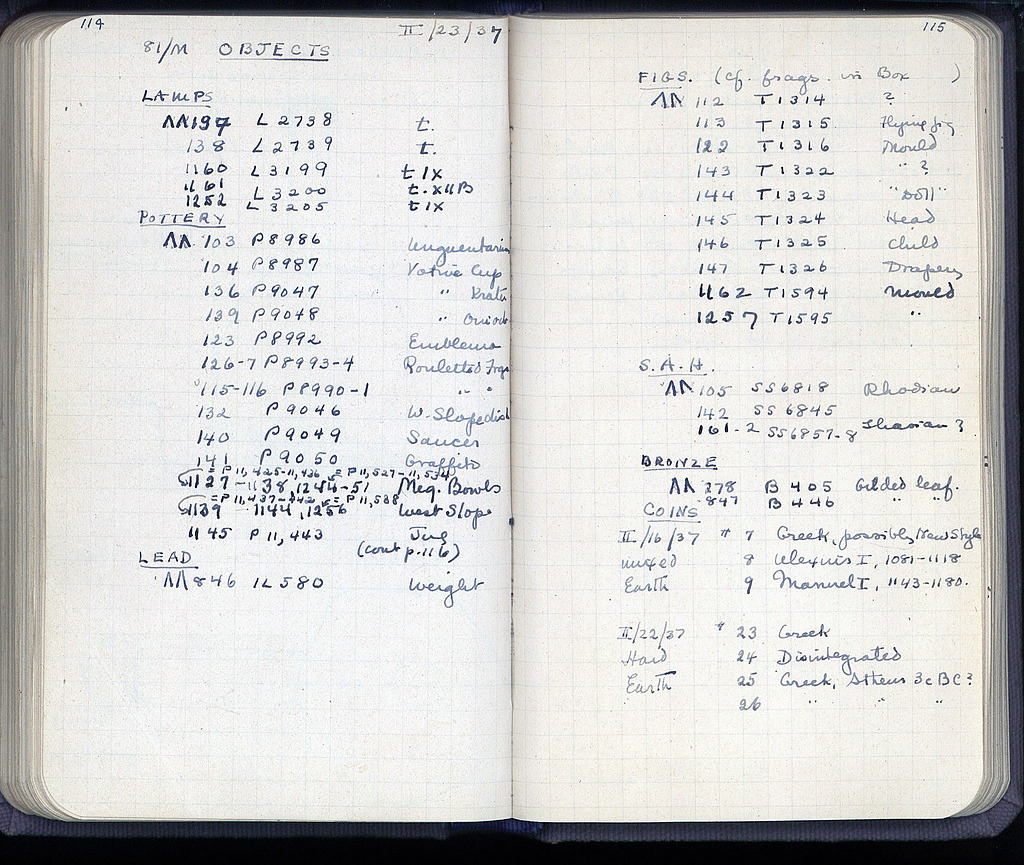 114
II/23/37
81/M OBJECTS
LAMPS
ΛΛ 137 L 2738 t.
138 L 2739 t.
1160 L 3199 t IX
1161 L 3200 t. XIIB
1252 L 3205 t IX
POTTERY
ΛΛ 103 P8986 Unguentarium
104 P8987 Votive Cup
136 P9047 " Krater
139 P9048 "
123 P8992 Emblema
126-7 P8993-4 Rouletted Frgs
115-116 P8990-1 " "
132 P9046 W. Slope dish
140 P9049 Saucer
141 P9050 Graffito
= P 11,425-11,436 = P 11,527-11,534
1127-1138, 1244-51 Meg. Bowls
= P 11,437-442 = P 11,538
1139 1144, 1256 West Slope
1145 P 11,443 Jug
(cont p. 116)
LEAD
ΛΛ 846 IL 580 weight
115
FIGS. (cf. frags. in Box )
ΛΛ 112 T 1314 ?
113 T 1315 Flying fig
122 T 1316 Mould
143 T 1322 " ?
144 T 1323 "Doll"
145 T 1324 Head
146 T 1325 Child
147 T 1326 Drapery
1162 T 1594 Mould
1257 T 1595 "
S.A.H.
ΛΛ 105 SS 6818 Rhodian
142 SS 6845
161-2 SS 6857-8 Thasian ?
BRONZE
ΛΛ 278 B 405 Gilded leaf.
847 B 446 " "
COINS
II/16/37 # 7 Greek, possibly New Style
mixed 8 Alexius I, 1081-1118
Earth 9 Manuel I, 1143-1180.
II/22/37 # 23 Greek
Hard 24 Disintegrated
Earth 25 Greek, Athens 3c BC ?
26 " " "